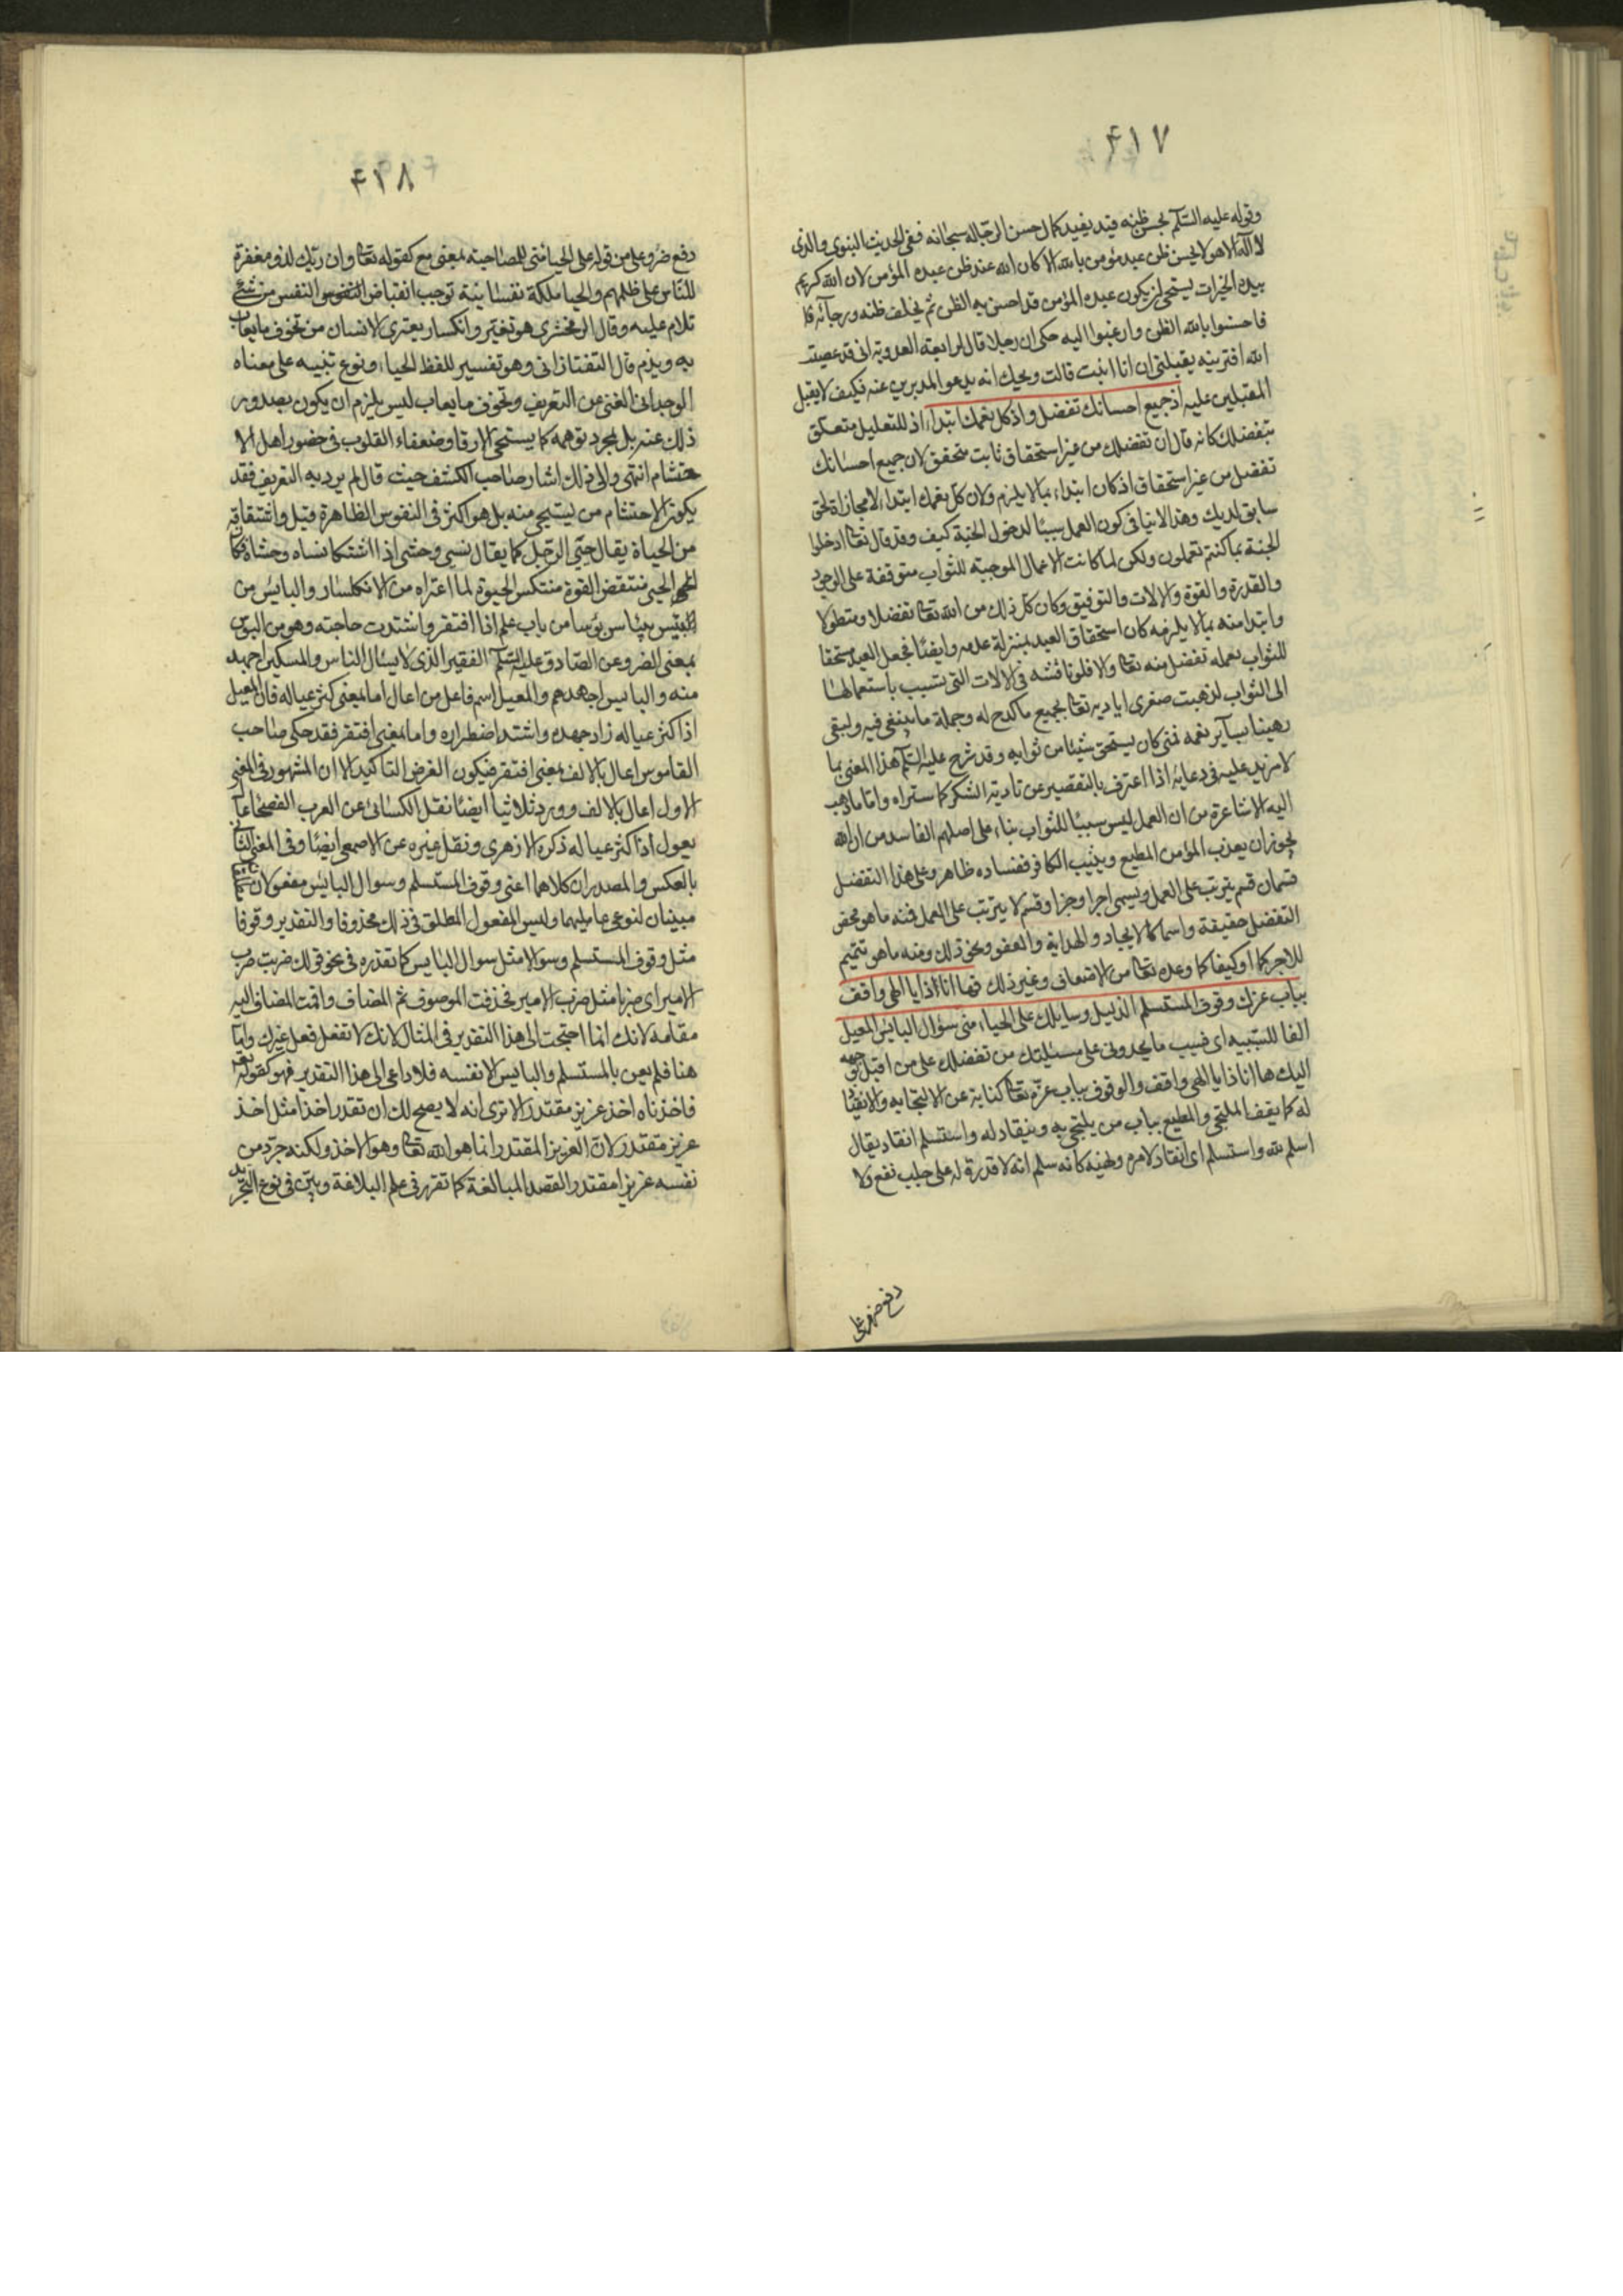 ۴۱۷
وقوله عليه السّلم بحسن ظنه قيد يفيد كمال حسن الرّجا له سبحانه ففى الحديث النبوى والذى
لا اله الا هو لا يحسن ظن عبد مؤمن بالله الا كان الله عند ظن عبده المؤمن لان الله كريم
بيده الخيرات يستحى ان يكون عبده المؤمن قد احسن به الظن ثم يخلف ظنه ورجائه
فاحسنوا بالله الظن وارغبوا اليه حكى ان رجلا قال لرابعة العدوية انى قد عصيت
الله افترينه يقبلنى ان انا انبت قالت ويحك انه يدعو المدبرين عنه فكيف لا يقبل
المقبلين عليه اذ جميع احسانك تفضل واذ كل نعمك ابتداء اذ للتعليل متعلق
بتفضلك كانه قال ان تفضلك من غير استحقاق ثابت متحقق لان جميع احسانك
تفضل من غير استحقاق اذ كان ابتداء بما لا يلزم ولان كل نعمك ابتداء لا مجازاة لحق
سابق لديك وهذا لا ينافى كون العمل سببًا لدخول الجنة كيف وقد قال تعا ادخلوا
الجنة بما كنتم تعملون ولكن لما كانت الاعمال الموجبة للثواب متوقفة على الوجود
والقدرة والقوة والالات والتوفيق وكان كل ذلك من الله تعا تفضلا وتطولا
وابتدا منه بما لا يلزمه كان استحقاق العبد بمنزلة عدمه وايضًا فجعل العبد مستحقا
للثواب بعمله تفضل منه تعا والا فلو ناقشه فى الالات التى تسبب باستعمالها
الى الثواب لذهبت صغرى اياديه تعا بجميع ما كدح له وجملة ما ينبغى فيه ولبقى
رهينا بسآير نعمه فمتى كان يستحق شيئا من ثوابه وقد شرح عليه السّلم هذا المعنى بما
لا مزيد عليه فى دعائه اذا اعترف بالتقصير عن تادية الشكر كما ستراه واما ما ذهب
اليه الاشاعرة من ان العمل ليس سببًا للثواب بناء على اصلهم الفاسد من ان الله
يجوز ان يعذب المؤمن المطيع ويثيب الكافر ففساده ظاهر وعلى هذا التفضل
قسمان قسم يترتب على العمل ويسمى اجرا وجزا وقسم لا يترتب على العمل فمنه ما هو محض
التفضل حقيقة واسما كالايجاد والهداية والعفو ونحو ذلك ومنه ما هو تتميم
للاجر كما او كيفا كما وعده تعا من الاضعاف وغير ذلك فها انا ذا يا الهى واقف
بباب عزك وقوف المستسلم الذليل وسايلك على الحياء منى سؤال البائس المعيل
الفا للسّببيه اى فبسبب ما يحدونى على مسئلتك من تفضلك على من اقبل بوجهه
اليك ها انا ذا يا الهى واقف والوقوف بباب عزّه تعا كناية عن الالتجا به والانقياد
له كما يقف الملتجى والمطيع بباب من يلتجى به وينقاد له واستسلم انقاد يقال
اسلم لله واستسلم اى انقاد لامره ونهيه كانه سلم انه لا قدرة له على جلب نفع ولا
دفع ضر وعلى
۴۱۸
دفع ضرو على من قوله على الحيا منى للمصاحبة بمعنى مع كقوله تعا وان ربّك لذو مغفرة
للنّاس على ظلمهم والحيا ملكة نفسانية توجب انقباض النفس من شئ
تلام عليه وقال الزمخشرى هو تغيّر وانكسار يعترى الانسان من تخوف ما يعاب
به ويذم قال التفتازانى وهو تفسير للفظ الحياء ونوع تنبيه على معناه
الوجدانى الغنى عن التعريف وتخوف ما يعاب ليس يلزم ان يكون بصدور
ذلك عنه بل لمجرد توهمه كما يستحى الارقا وضعفاء القلوب فى حضور اهل الا
حتشام انتهى والى ذلك اشار صاحب الكشف حيث قال لم يرد به التعريف فقد
يكون الاحتشام من يستحى منه بل هو اكثر فى النفوس الظاهرة قيل واشتقاقه
من الحياة يقال حيى الرّجل كما يقال نسى وحشى اذا اشتكا نساه وحشاه فكان
الحيى منتقض القوة منتكس الحيوة لما اعتراه من الانكسار والبائس من
بئس يبئاس بؤسا من باب علم اذا افتقر واشتدت حاجته وهو من البؤس
بمعنى الضر وعن الصّادق عليه السّلم الفقير الذى لا يسئال الناس والمسكين اجهد
منه والبائس اجهدهم والمعيل اسم فاعل من اعال اما بمعنى كثر عياله فان المعيل
اذا كثر عياله زاد جهده واشتد اضطراره واما بمعنى افتقر فقد حكى صاحب
القاموس اعال بالالف بمعنى افتقر فيكون الغرض التاكيد الا ان المشهور فى المعنى
الاول اعال بالالف وورد ثلاثيا ايضًا نقل الكسائى عن العرب الفصحا عال
يعول اذا كثر عياله ذكره الازهرى ونقل غيره عن الاصمعى ايضًا وفى المعنى الثانى
بالعكس والمصدران كلاهما اعنى وقوف المستسلم وسوال البائس مفعولان
مبينان لنوعى عامليهما وليس المفعول المطلق فى ذلك محذوفا والتقدير وقوفا
مثل وقوف المستسلم وسوالا مثل سوال البائس كما تقدره فى نحو قولك ضربت ضرب
الامير اى ضربا مثل ضرب الامير فحذفت الموصوف ثم المضاف واقمت المضاف اليه
مقامه لانك انما احتجت الى هذا التقدير فى المثال لانك لا تفعل فعل غيرك واما
هنا فلم يعن بالمستسلم والبائس الا نفسه فلا داعى الى هذا التقدير فهو كقوله تعا
فاخذناه اخذ عزيز مقتدر الا ترى انه لا يصح لك ان تقدر اخذا مثل اخذ
عزيز مقتدر لانّ العزيز المقتدر انما هو الله تعا وهو الاخذ ولكنه جرّد من
نفسه عزيزا مقتدرا لقصد المبالغة كما تقرر فى علم البلاغة وبيّن فى نوع التجريد